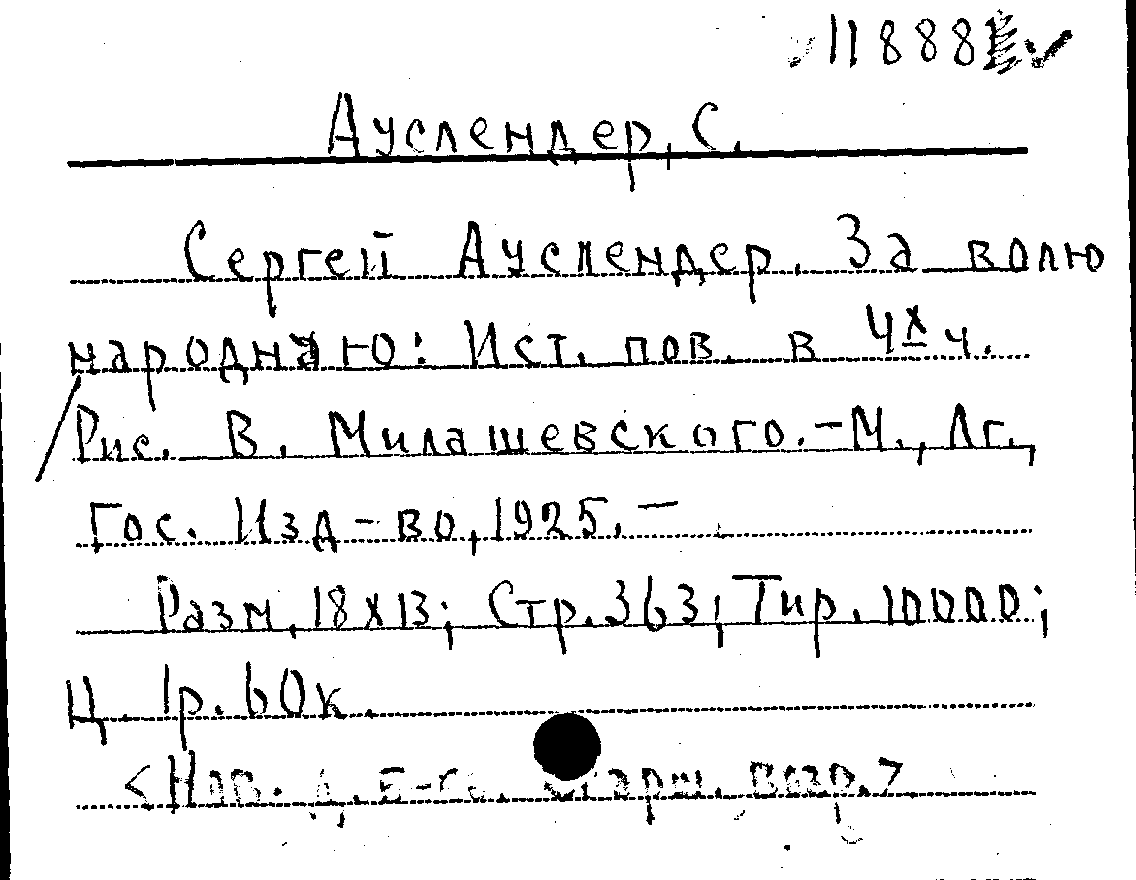 11888
Ауслендер, С.
Сергей Ауслендер. За волю
народную: Ист. пов. в 4х ч.
Рис. В. Милашевского.-М., Лг.,
Гос. Изд-во, 1925.-
Разм. 18х13; Стр. 363; Тир. 10000;
Ц. 1р. 60к.
<Нов. д. б-ка. Старш. возр.>